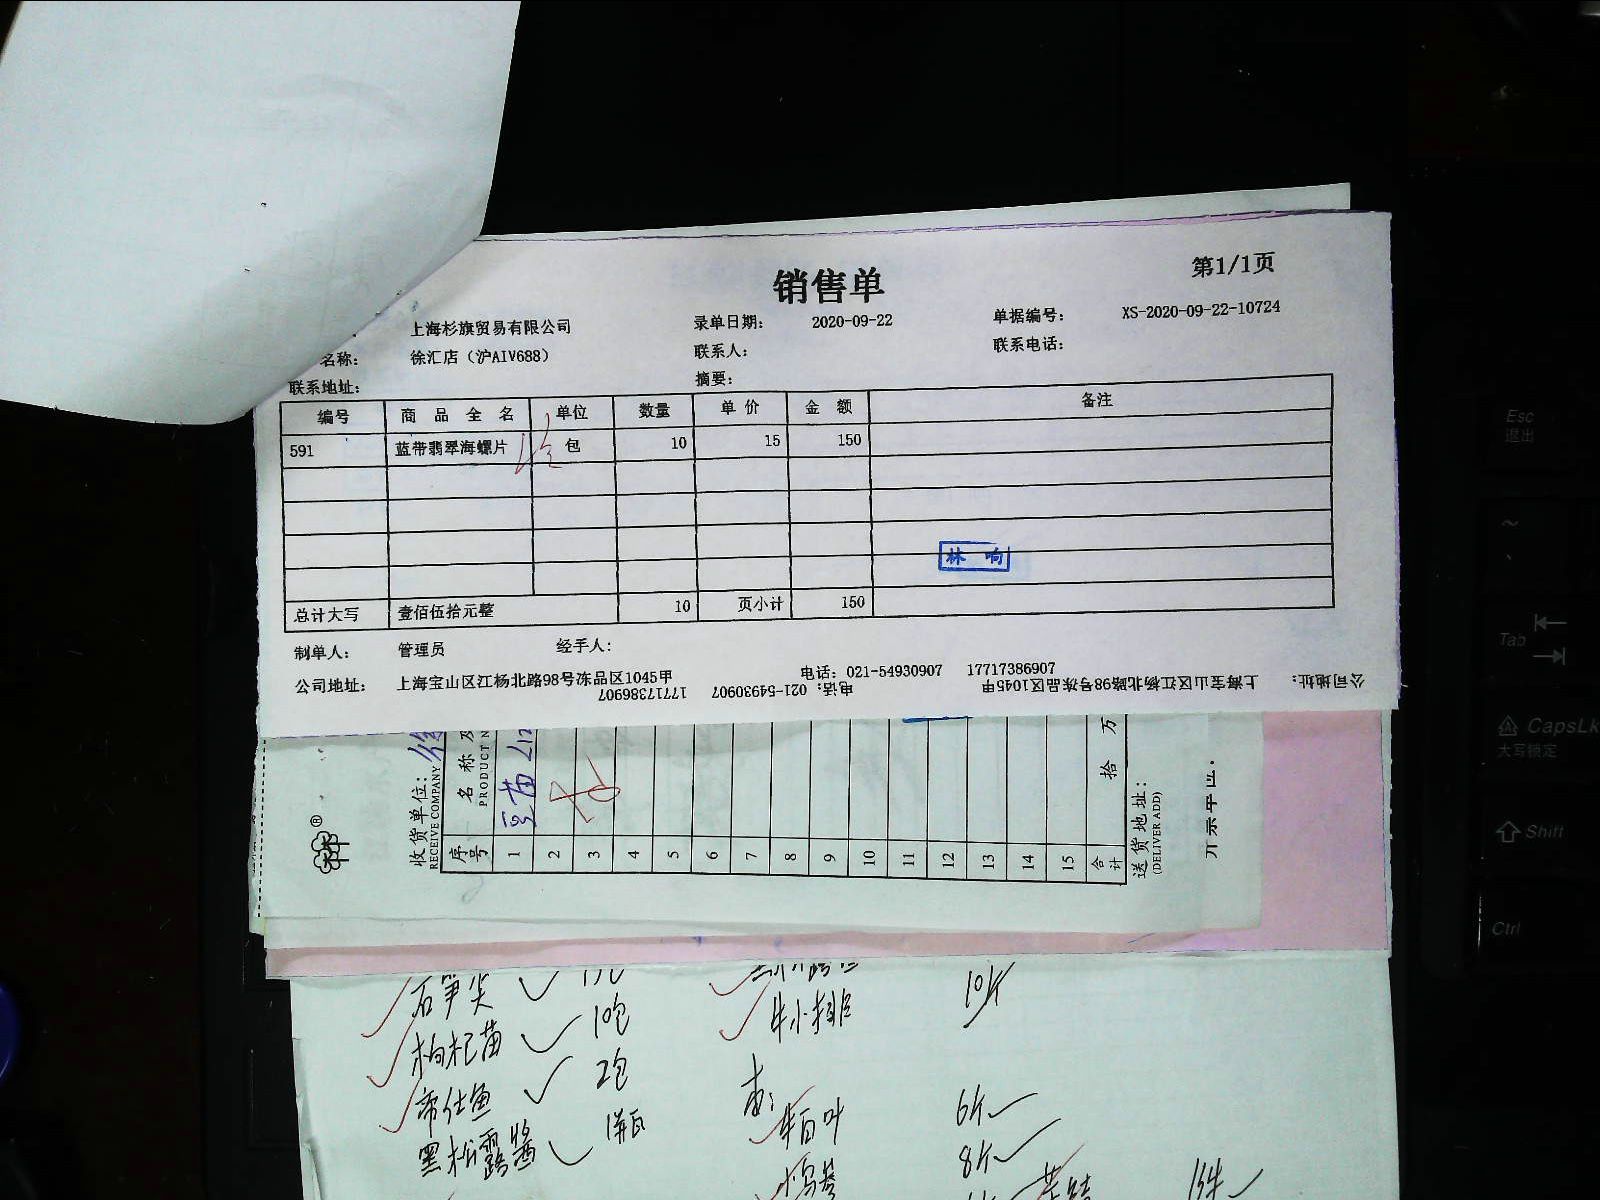 销售单
第1/1页
上海杉旗贸易有限公司 录单日期： 2020-09-22 单据编号： XS-2020-09-22-10724
名称： 徐汇店（沪AIV688） 联系人： 联系电话：
联系地址： 摘要：
编号 商品全名 单位 数量 单价 金额 备注
591 蓝带翡翠海螺片 包 10 15 150
林响
总计大写 壹佰伍拾元整 10 页小计 150
制单人： 管理员 经手人：
公司地址： 上海宝山区江杨北路98号冻品区1045甲 电话：021-54930907 17717386907
公司地址： 上海宝山区江杨北路98号冻品区1045甲 电话：021-54930907 17717386907
收货单位：
RECEIVE COMPANY
序号 名称及
PRODUCT N
1 豆苗
2
3
4
5
6
7
8
9
10
11
12
13
14
15
合计 拾 万
送货地址：
(DELIVER ADD)
石笋尖
枸杞苗 10包
2包
黑松露酱 1瓶
牛小排 10斤
牛百叶 6斤
8斤
1件
Esc
退出
~
Tab
CapsLk
大写锁定
Shift
Ctrl